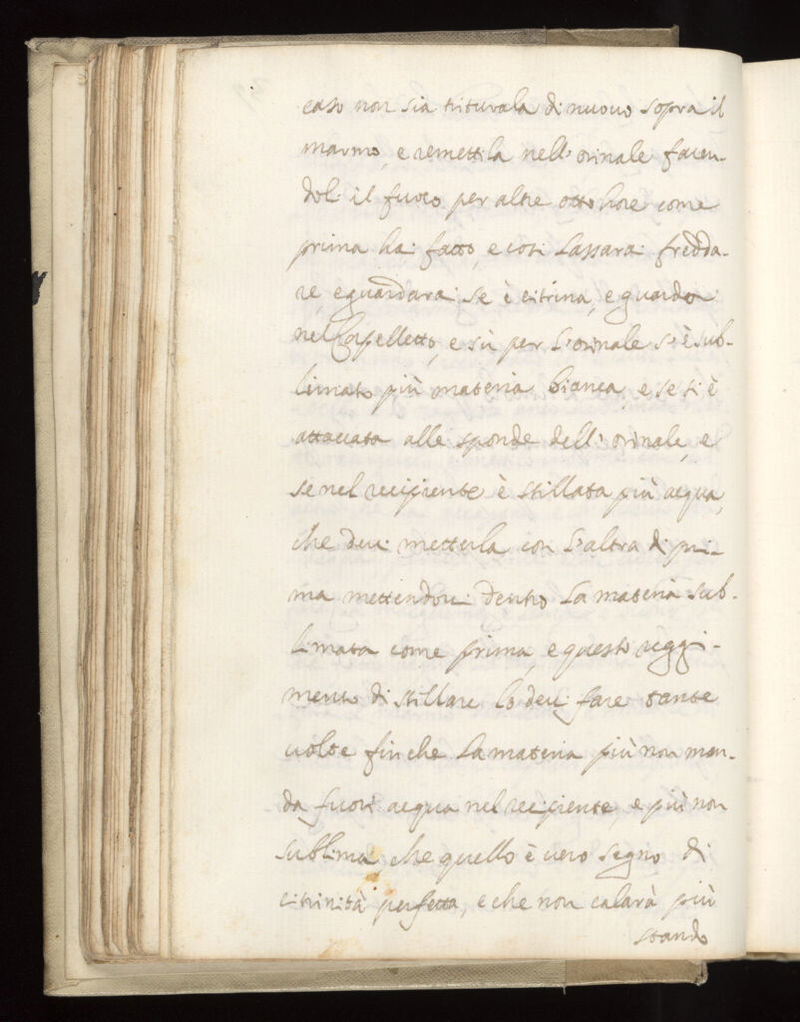 caso non sia triturala di nuovo sopra il
marmo, e remettila nell' orinale facen-
dol' il fuoco per altre otto hore come
prima hai fatto, e cosi lassarai fredda-
re, e guardarai se è citrina, e guarda
nel Capelletto, e sù per l'orinale s' è sub-
limato più materia bianca, e se ti è
attacata alle sponde dell' orinale, e
se nel recipiente è stillata più acqua,
che devi metterla con l'altra di pri-
ma mettendovi dentro la materia sub-
limata come prima, e questo reggi-
mento di stillare lo devi fare tante
volte finche la materia più non man-
da fuori acqua nel recipiente, e più non
sublima, che quello è vero segno di
citrinità perfetta, e che non calarà più
stando